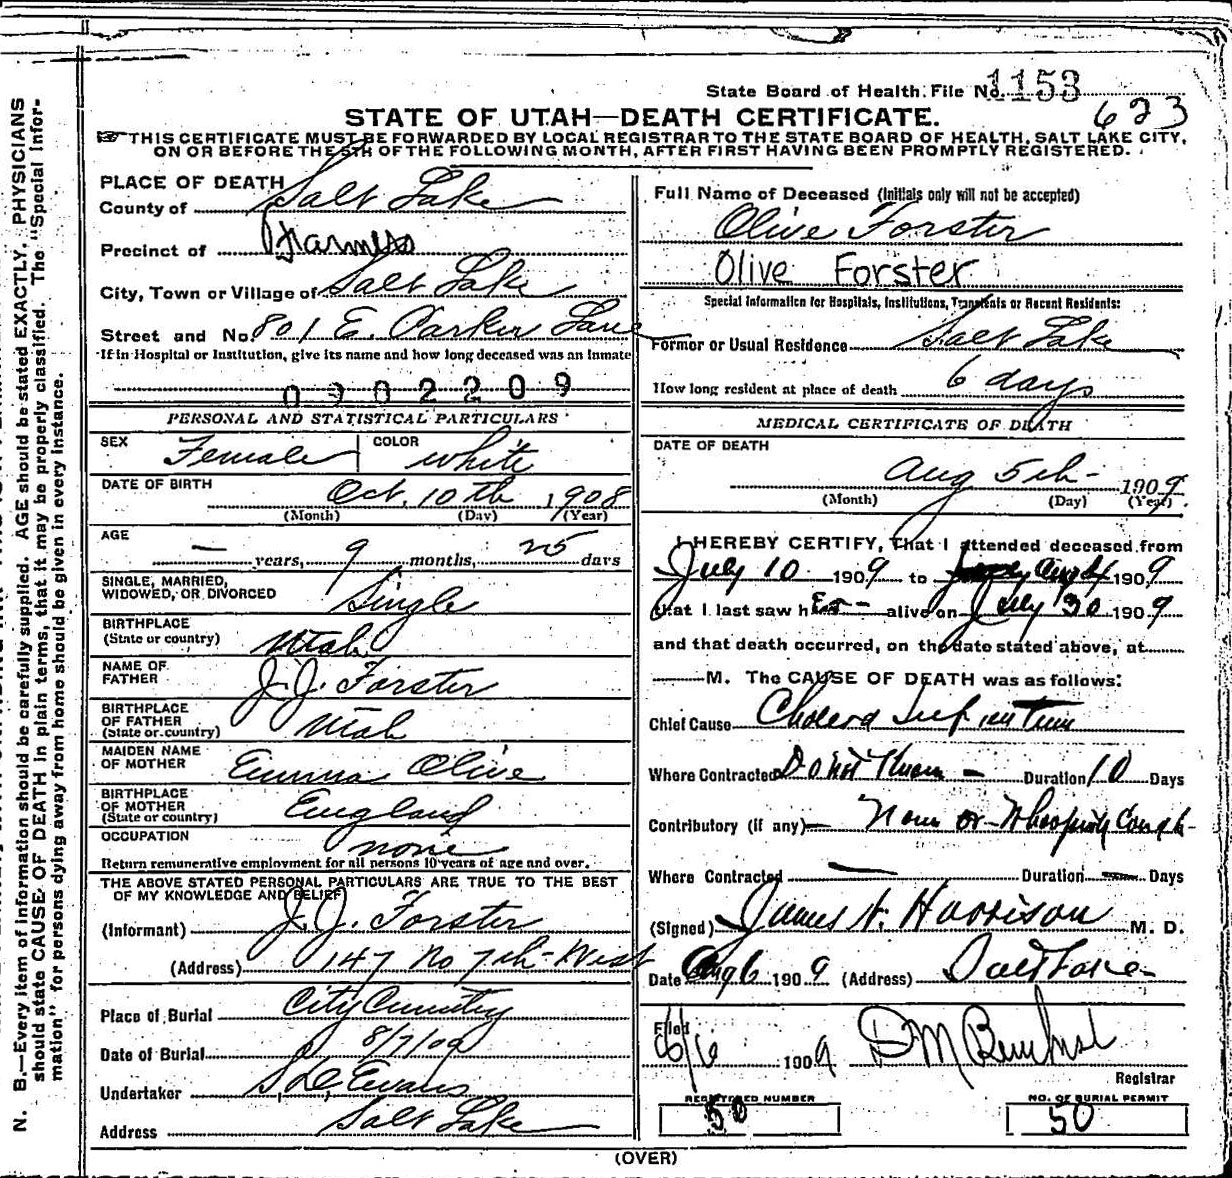 State Board of Health File No. 1153
623
STATE OF UTAH—DEATH CERTIFICATE.
THIS CERTIFICATE MUST BE FORWARDED BY LOCAL REGISTRAR TO THE STATE BOARD OF HEALTH, SALT LAKE CITY,
ON OR BEFORE THE 5TH OF THE FOLLOWING MONTH, AFTER FIRST HAVING BEEN PROMPTLY REGISTERED.
PLACE OF DEATH
County of Salt Lake
Precinct of Farmers
City, Town or Village of Salt Lake
Street and No. 801 E. Parker Lane
If in Hospital or Institution, give its name and how long deceased was an inmate
0902209
PERSONAL AND STATISTICAL PARTICULARS
SEX Female COLOR white
DATE OF BIRTH
Oct. 10th 1908
(Month) (Day) (Year)
AGE
— years, 9 months, 25 days
SINGLE, MARRIED,
WIDOWED, OR DIVORCED Single
BIRTHPLACE
(State or country) Utah
NAME OF
FATHER J. J. Forster
BIRTHPLACE
OF FATHER
(State or country) Utah
MAIDEN NAME
OF MOTHER Emma Olive
BIRTHPLACE
OF MOTHER
(State or country) England
OCCUPATION none
Return remunerative employment for all persons 10 years of age and over.
THE ABOVE STATED PERSONAL PARTICULARS ARE TRUE TO THE BEST
OF MY KNOWLEDGE AND BELIEF
(Informant) J. J. Forster
(Address) 147 No 7th West
Place of Burial City Cemetery
Date of Burial 8/7/09
Undertaker S. D. Evans
Address Salt Lake
Full Name of Deceased (Initials only will not be accepted)
Olive Forster
Olive Forster
Special Information for Hospitals, Institutions, Transients or Recent Residents:
Former or Usual Residence Salt Lake
How long resident at place of death 6 days
MEDICAL CERTIFICATE OF DEATH
DATE OF DEATH
Aug 5th 1909
(Month) (Day) (Year)
I HEREBY CERTIFY, That I attended deceased from
July 10 1909 to Aug 4 1909
that I last saw her alive on July 30 1909
and that death occurred, on the date stated above, at
M. The CAUSE OF DEATH was as follows:
Chief Cause Cholera Infantum
Where Contracted Do not Know — Duration 10 Days
Contributory (if any) None or Whooping Cough
Where Contracted — Duration — Days
(Signed) James N. Harrison M. D.
Date Aug 6 1909 (Address) Salt Lake
Filed 8/6 1909 D M
Registrar
REGISTERED NUMBER
50
NO. OF BURIAL PERMIT
50
(OVER)
N. B.—Every item of information should be carefully supplied. AGE should be stated EXACTLY. PHYSICIANS
should state CAUSE OF DEATH in plain terms, that it may be properly classified. The "Special Infor-
mation" for persons dying away from home should be given in every instance.